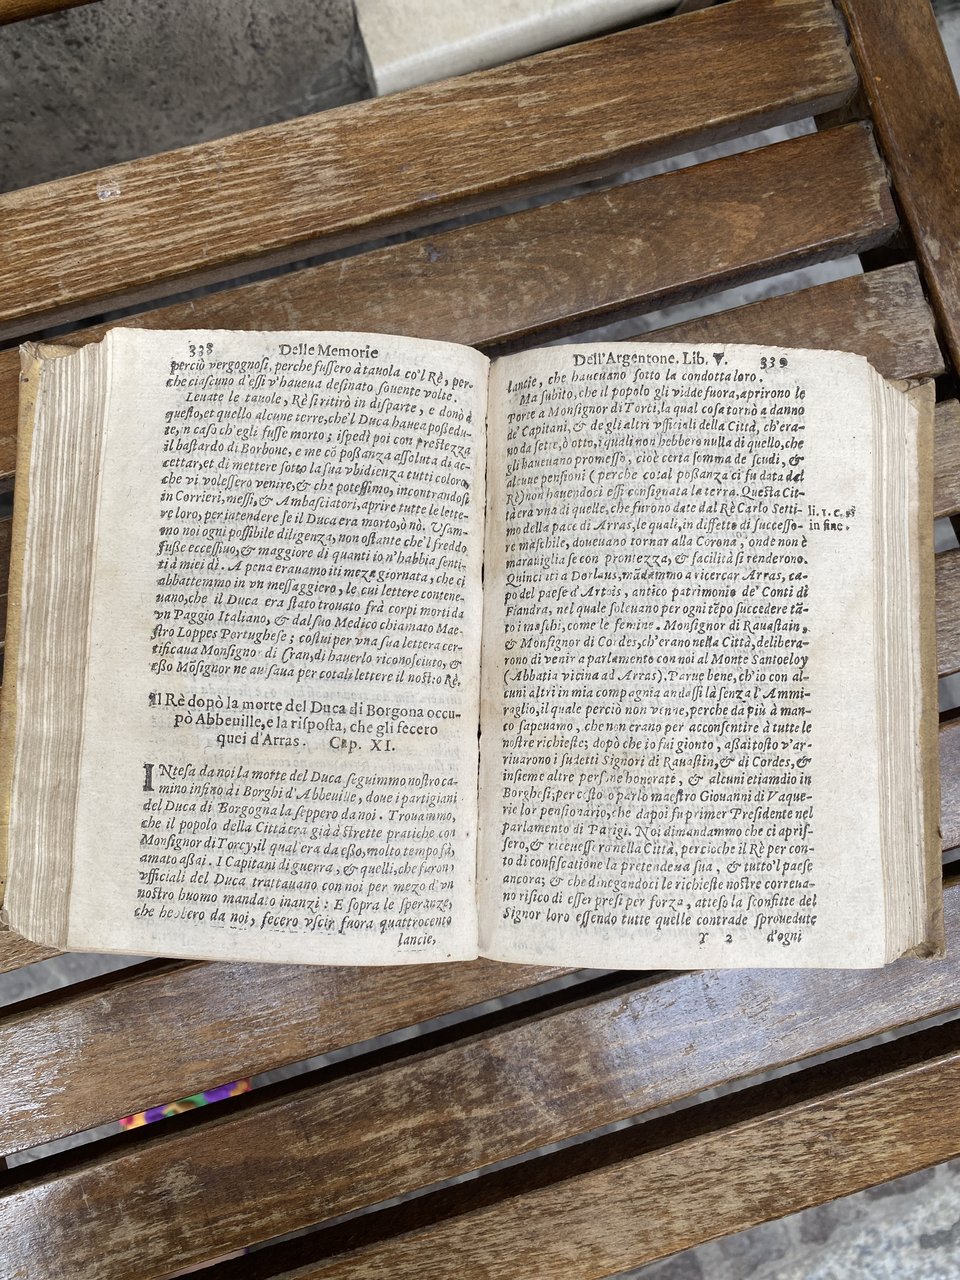 338 Delle Memorie
perciò vergognosi, perche fussero à tauola co'l Rè, per-
che ciascuno d'essi v'haueua desinato souente volte.
Leuate le tauole, Rè si ritirò in disparte, e donò à
questo, et quello alcune terre, che'l Duca hauea possedu-
te, n caso ch'egli fusse morto; ispedì poi con prestezza
il bastardo di Borbone, e me cō possanza assoluta di ac-
cettar, et di mettere sotto la sua vbidienza tutti coloro,
che vi volessero venire, & che potessimo, incontrandosi
in Corrieri, messi, & Ambasciatori, aprire tutte le lette-
re loro, per intendere se il Duca era morto, ò nò. Vsam-
mo noi ogni possibile diligenza, non ostante che'l freddo
fusse eccessiuo, & maggiore di quanti io n'habbia senti-
ti à miei dì. A pena erauamo iti meza giornata, che ci
abbattemmo in vn messaggiero, le cui lettere contene-
uano, che il Duca era stato trouato frà corpi morti da
vn Paggio Italiano, & dal suo Medico chiamato Mae-
stro Loppes Portughese; costui per vna sua lettera cer-
tificaua Monsigno di Cran, di hauerlo riconosciuto, &
esso Mōsignor ne auisaua per cotali lettere il nostro Rè.
Il Rè dopò la morte del Duca di Borgona occu-
pò Abbeuille, e la risposta, che gli fecero
quei d'Arras. Cap. XI.
INtesa da noi la morte del Duca seguimmo nostro ca-
mino infino à i Borghi d'Abbeuille, doue i partigiani
del Duca di Borgogna la seppero da noi. Trouammo,
che il popolo della Città era già à strette pratiche con
Monsignor di Torcy, il qual era da esso, molto tempo fà,
amato assai. I Capitani di guerra, & quelli, che furon
vfficiali del Duca trattauano con noi per mezo d'vn
nostro huomo mandato inanzi: E sopra le speranze,
che hebbero da noi, fecero vscir fuora quattrocento
lancie,
Dell'Argentone. Lib. V. 339
lancie, che haueuano sotto la condotta loro.
Ma subito, che il popolo gli vidde fuora, aprirono le
porte a Monsignor di Torcì, la qual cosa tornò a danno
de' Capitani, & de gli altri vfficiali della Città, ch'era-
no da sette, ò otto, i quali non hebbero nulla di quello, che
gli haueuano promesso, cioè certa somma de scudi, &
alcune pensioni (perche cotal possanza ci fu data dal
Rè) non hauendoci essi consignata la terra. Questa Cit-
tà era vna di quelle, che furono date dal Rè Carlo Setti-
mo della pace di Arras, le quali, in diffetto di successo-
re maschile, doueuano tornar alla Corona, onde non è
marauiglia se con prontezza, & facilità si renderono.
Quinci iti a Dorlans, mādammo a ricercar Arras, ca-
po del paese d'Artois, antico patrimonio de' Conti di
Fiandra, nel quale soleuano per ogni tēpo succedere tā-
to i maschi, come le femine. Monsignor di Rauastain,
& Monsignor di Cordes, ch'erano nella Città, delibera-
rono di venir a parlamento con noi al Monte Santoeloy
(Abbatia vicina ad Arras). Parue bene, ch'io con al-
cuni altri in mia compagnia andassi là senza l'Ammi-
raglio, il quale perciò non venne, perche da più à man-
co sapeuamo, che non erano per acconsentire à tutte le
nostre richieste; dopò che io fui gionto, assai tosto v'ar-
riuarono i sudetti Signori di Rauastin, & di Cordes, &
insieme altre persone honorate, & alcuni etiamdio in
Borghesi; per costoro parlò maestro Giouanni di Vaque-
rie lor pensionario, che dapoi fu primer Presidente nel
parlamento di Parigi. Noi dimandammo che ci apris-
sero, & riceuessero nella Città, percioche il Rè per con-
to di confiscatione la pretendena sua, & tutto'l paese
ancora; & che dinegandoci le richieste nostre correua-
no risico di esser presi per forza, atteso la sconfitte del
Signor loro essendo tutte quelle contrade sprouedute
li. 1. c. 18
in fine.
Y 2 d'ogni